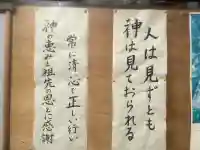 人は見ずとも
神は見ておられる
常に清い心と正しい行い
神の恵みと祖先の恩とに感謝